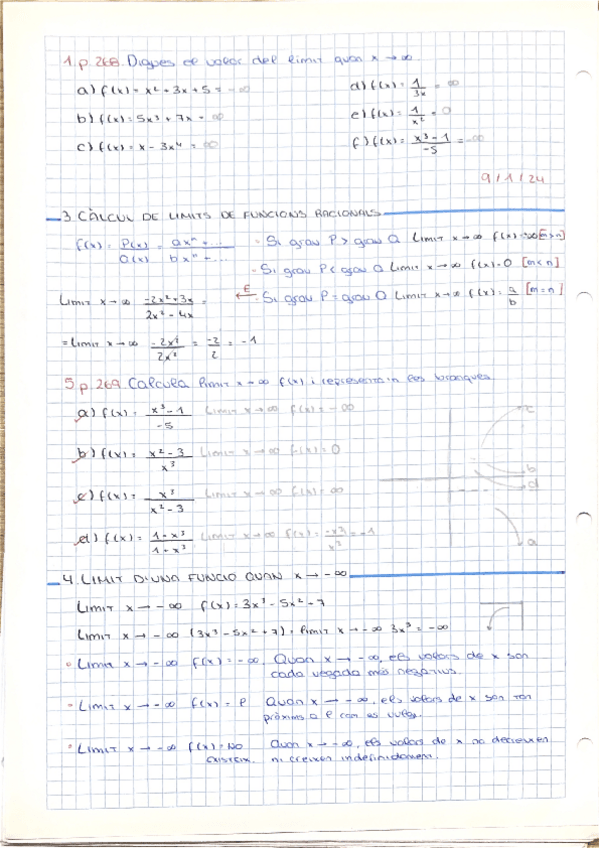 1. p. 268. Digues el valor del límit quan x → ∞.
a) f(x) = x² + 3x + 5 = -∞
d) f(x) = 1/3x = ∞
b) f(x) = 5x³ + 7x = ∞
e) f(x) = 1/x² = 0
c) f(x) = x - 3x⁴ = ∞
f) f(x) = x³ - 1/-5 = -∞
9/1/24
3. CÀLCUL DE LIMITS DE FUNCIONS RACIONALS
f(x) = P(x)/Q(x) = axⁿ + .../bxⁿ - ...
- Si grau P > grau Q Limit x → ∞ f(x) = ∞ [m > n]
- Si grau P < grau Q Limit x → ∞ f(x) = 0 [m < n]
Limit x → ∞ -2x² + 3x/2x² - 4x =
E ← - Si grau P = grau Q Limit x → ∞ f(x) = a/b [m = n]
= Limit x → ∞ -2x²/2x² = -2/2 = -1
5 p. 269. Calcula limit x → ∞ f(x) i representa'n les branques.
a) f(x) = x³ - 1/-5 Limit x → ∞ f(x) = -∞
b) f(x) = x² - 3/x³ Limit x → ∞ f(x) = 0
c) f(x) = x³/x² - 3 Limit x → ∞ f(x) = ∞
d) f(x) = 1 - x³/1 + x³ Limit x → ∞ f(x) = -x³/x³ = -1
c
b
d
a
4. LIMIT D'UNA FUNCIO QUAN x → -∞
Limit x → -∞ f(x) = 3x³ - 5x² - 7
Limit x → -∞ (3x³ - 5x² + 7) = limit x → -∞ 3x³ = -∞
• Limit x → -∞ f(x) = -∞. Quan x → -∞, els valors de x son
cada vegada més negatius.
• Limit x → -∞ f(x) = P Quan x → -∞, els valors de x son tan
pròxims a P com es vulgui.
• Limit x → -∞ f(x) = No Quan x → -∞, els valors de x no decreixen
existeix. ni creixen indefinidament.